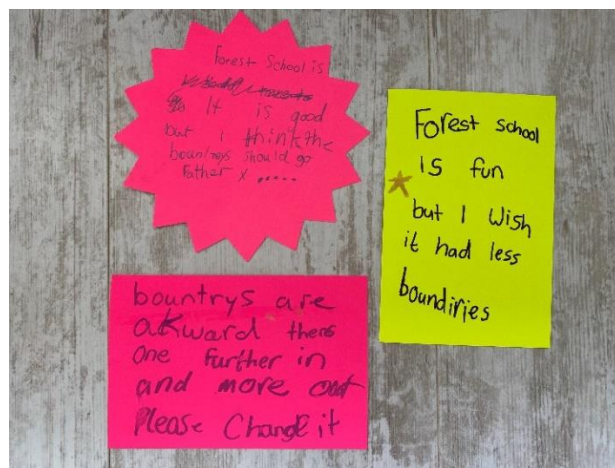 Forest School is
It is good
but I think the
bountrys should go
Father X .....
Forest school
is fun
but I wish
it had less
boundiries
bountrys are
akward thers
one further in
and more out
Please Change it